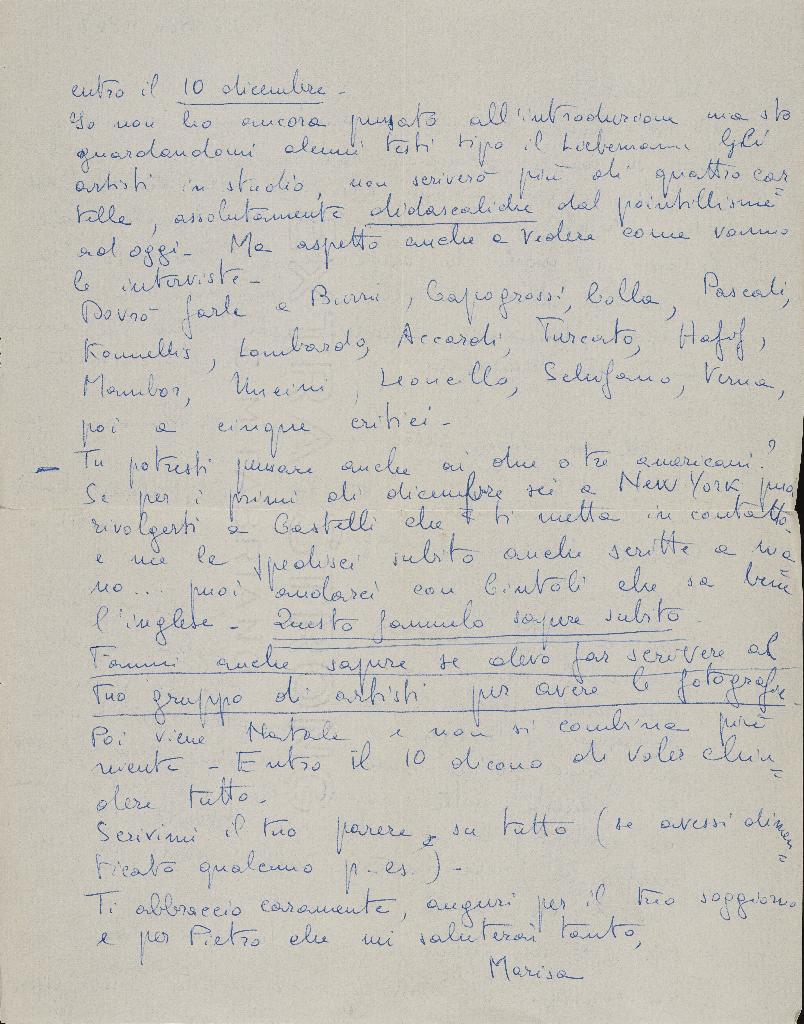 entro il 10 dicembre -
Io non ho ancora pensato all'introduzione ma sto
guardandomi alcuni testi tipo il Liebermann Gli
artisti in studio, non scriverò più di quattro car
telle, assolutamente didascaliche dal pointillisme
ad oggi - Ma aspetto anche a vedere come vanno
le interviste -
Dovrò farle a Burri, Capogrossi, Colla, Pascali,
Kounellis, Lombardo, Accardi, Turcato, Hafif,
Mambor, Uncini, Leoncillo, Schifano, Verna,
poi a cinque critici -
Tu potresti pensare anche ai due o tre americani?
Se per i primi di dicembre sei a New York puoi
rivolgerti a Castelli che ti metta in contatto
e me le spedisci subito anche scritte a ma=
no... puoi andarci con Cintoli che sa bene
l'inglese - Questo fammelo sapere subito
Fammi anche sapere se devo far scrivere al
tuo gruppo di artisti per avere le fotografie
Poi viene Natale e non si combina più
niente - Entro il 10 dicono di voler chiu=
dere tutto -
Scrivimi il tuo parere su tutto (se avessi dimen=
ticato qualcuno p. es.) -
Ti abbraccio caramente, auguri per il tuo soggiorno
e per Pietro che mi saluterai tanto,
Marisa